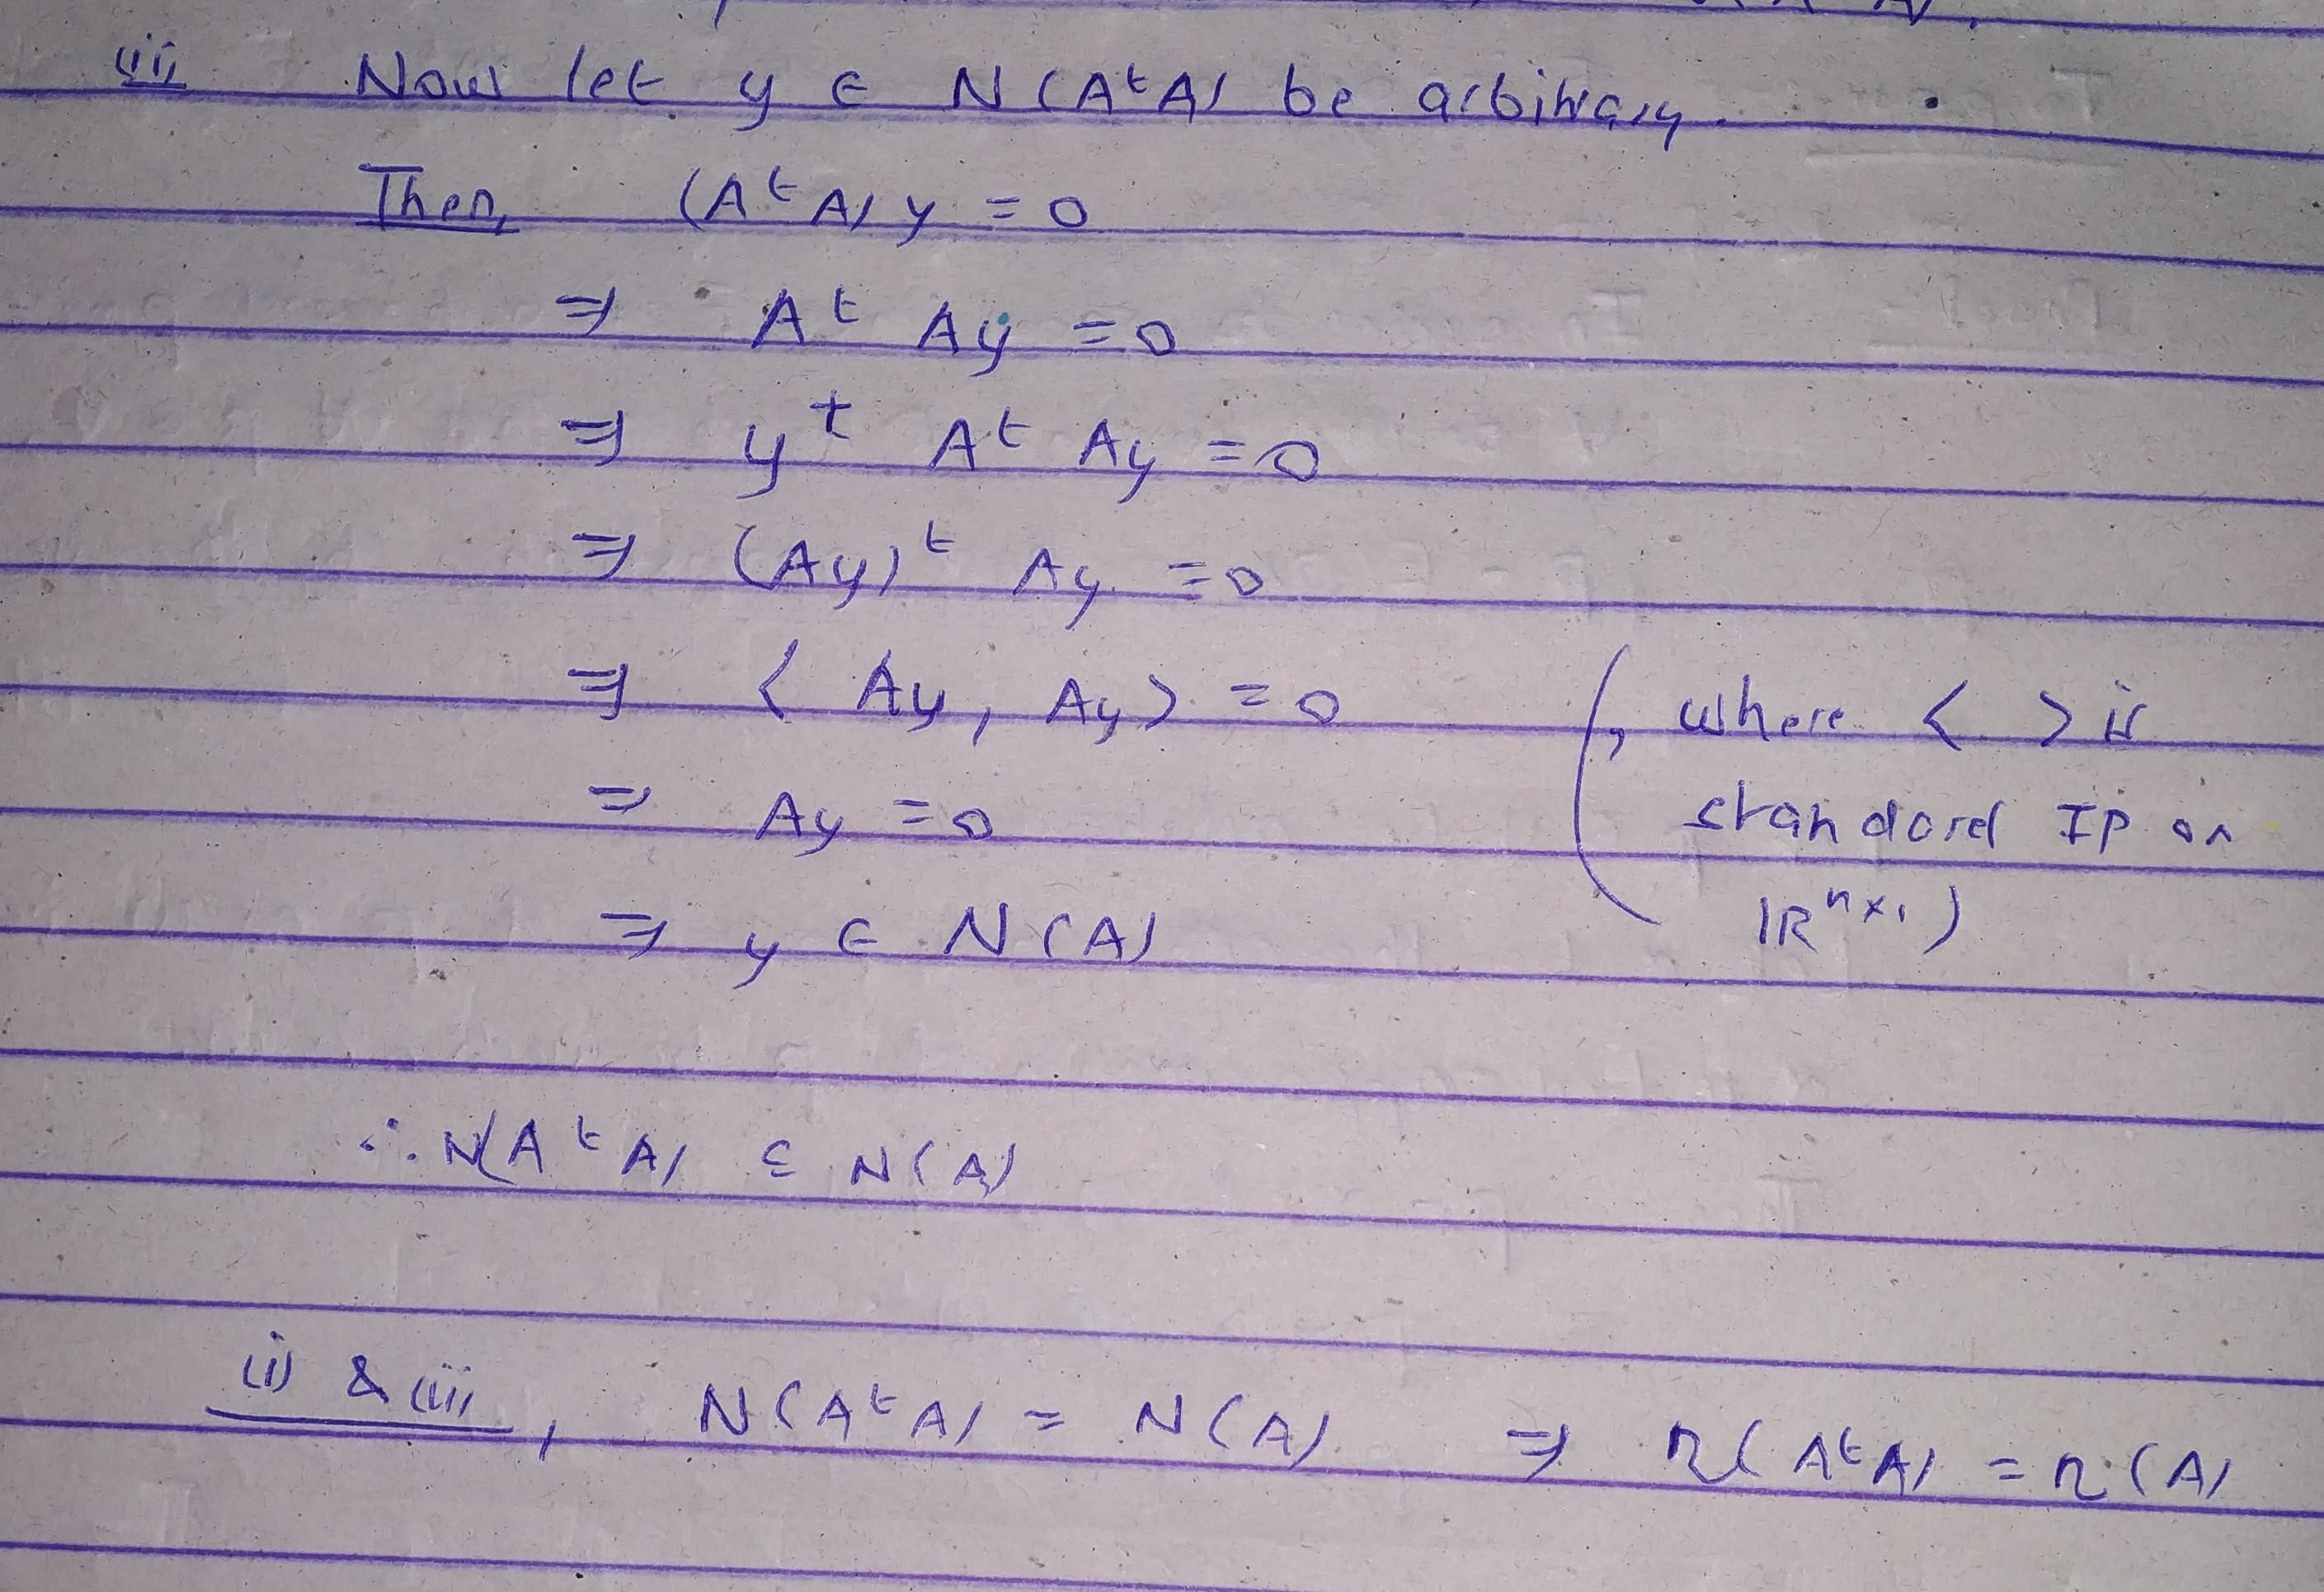 (ii) Now let y ∈ N(AᵗA) be arbitrary.
Then, (AᵗA)y = 0
⇒ Aᵗ Ay = 0
⇒ yᵗ Aᵗ Ay = 0
⇒ (Ay)ᵗ Ay = 0
⇒ ⟨Ay, Ay⟩ = 0 (, where ⟨ ⟩ is
⇒ Ay = 0 standard IP on
⇒ y ∈ N(A) ℝⁿˣ¹)
∴ N(AᵗA) ⊆ N(A)
(i) & (ii), N(AᵗA) = N(A) ⇒ η(AᵗA) = η(A)